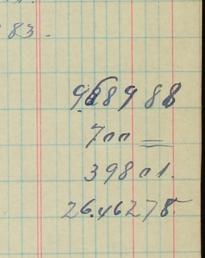 83.
968988
700
39801.
26.46278